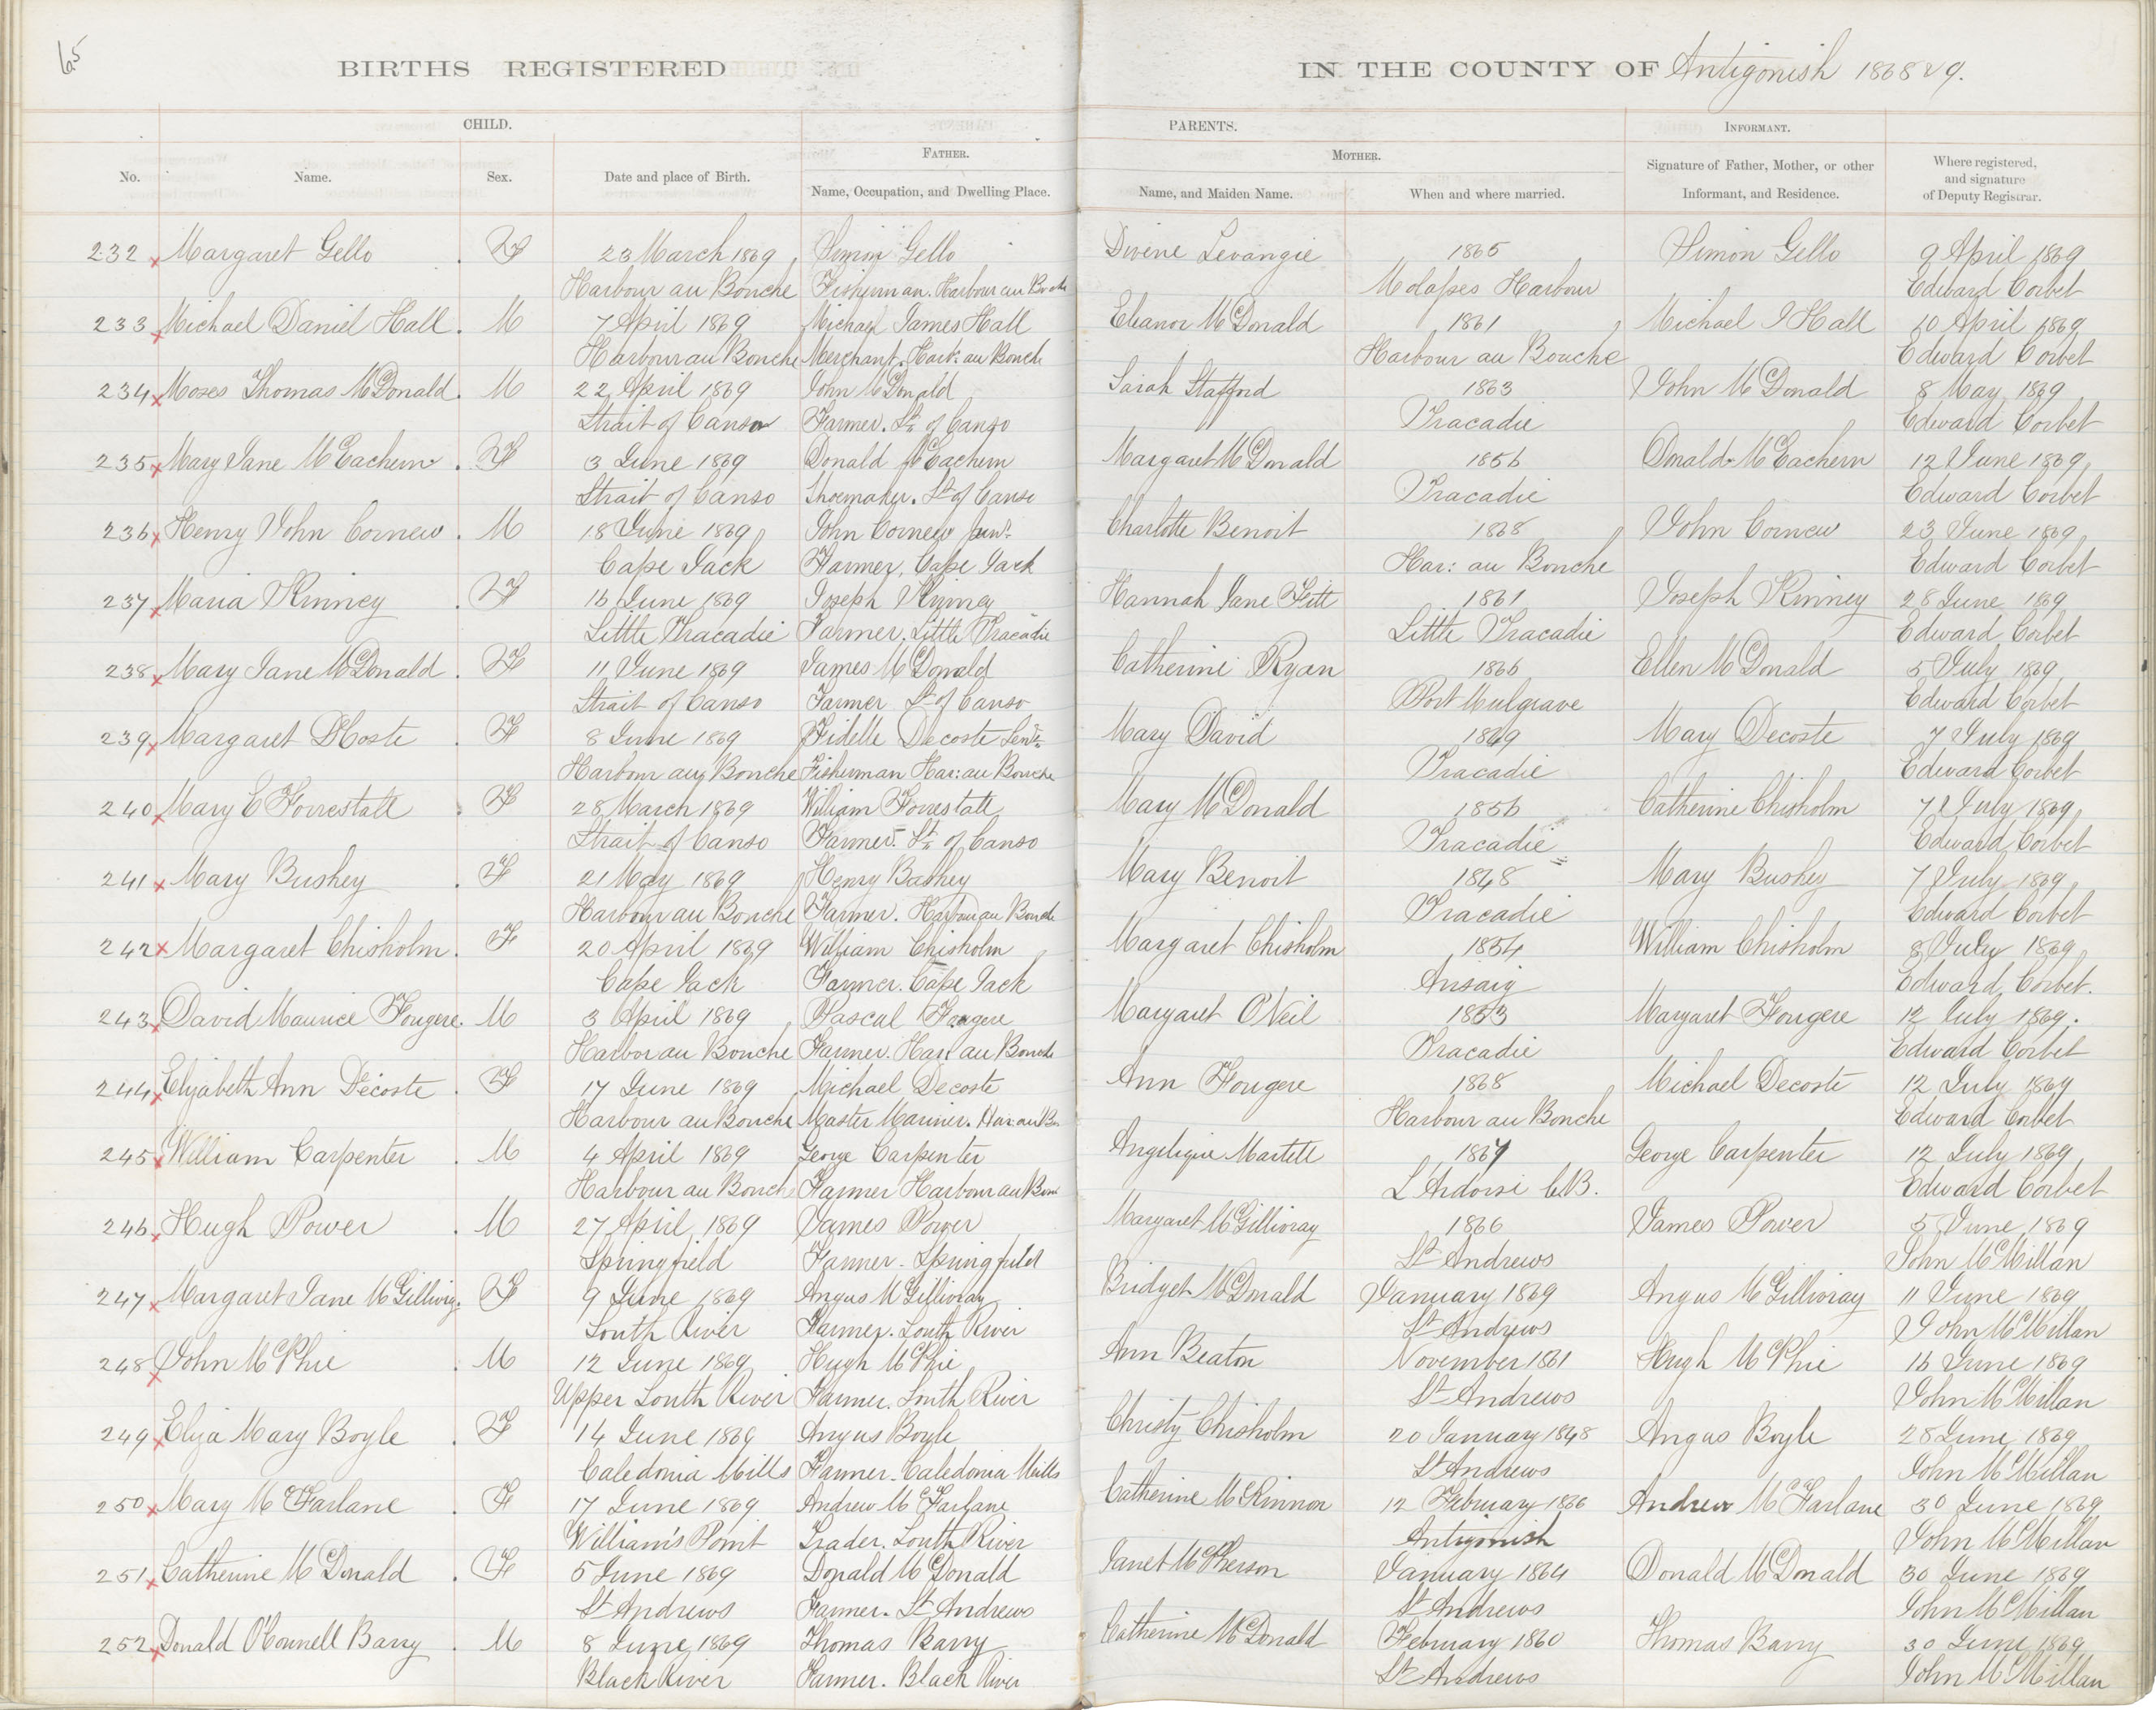 65
BIRTHS REGISTERED IN THE COUNTY OF Antigonish 1868 & 9.
CHILD. PARENTS. INFORMANT.
FATHER. MOTHER.
No. Name. Sex. Date and place of Birth. Name, Occupation, and Dwelling Place. Name, and Maiden Name. When and where married. Signature of Father, Mother, or other Informant, and Residence. Where registered, and signature of Deputy Registrar.
232 Margaret Gello . F 23 March 1869 Simon Gello Divine Levangie 1865 Simon Gello 9 April 1869
Harbour au Bouche Fisherman. Harbour au Bouche Molasses Harbour Edward Corbet
233 Michael Daniel Hall . M 7 April 1869 Michael James Hall Eleanor McDonald 1861 Michael J Hall 10 April 1869
Harbour au Bouche Merchant. Harb: au Bouche Harbour au Bouche Edward Corbet
234 Moses Thomas McDonald . M 22 April 1869 John McDonald Sarah Stafford 1863 John McDonald 8 May 1869
Strait of Canso Farmer. St. of Canso Tracadie Edward Corbet
235 Mary Jane McEachern . F 3 June 1869 Donald McEachern Margaret McDonald 1856 Donald McEachern 12 June 1869
Strait of Canso Shoemaker. St of Canso Tracadie Edward Corbet
236 Henry John Cornew . M 18 June 1869 John Cornew Junr. Charlotte Benoit 1868 John Cornew 23 June 1869
Cape Jack Farmer, Cape Jack Har: au Bouche Edward Corbet
237 Maria Kinney . F 16 June 1869 Joseph Kinney Hannah Jane Fitt 1861 Joseph Kinney 28 June 1869
Little Tracadie Farmer. Little Tracadie Little Tracadie Edward Corbet
238 Mary Jane McDonald . F 11 June 1869 James McDonald Catherine Ryan 1866 Ellen McDonald 5 July 1869
Strait of Canso Farmer St of Canso Port Mulgrave Edward Corbet
239 Margaret . F 8 June 1869 Fidelle Decoste Senr. Mary David 1849 Mary Decoste 7 July 1869
Harbour au Bouche Fisherman Har: au Bouche Tracadie Edward Corbet
240 Mary E Forrestall . F 28 March 1869 William Forrestall Mary McDonald 1856 Catherine Chisholm 7 July 1869
Strait of Canso Farmer. St. of Canso Tracadie Edward Corbet
241 Mary Bushey . F 21 May 1869 Henry Bushey Mary Benoit 1848 Mary Bushey 7 July 1869
Harbour au Bouche Farmer. Harbour au Bouche Tracadie Edward Corbet
242 Margaret Chisholm . F 20 April 1869 William Chisholm Margaret Chisholm 1854 William Chisholm 8 July 1869
Cape Jack Farmer. Cape Jack Arisaig Edward Corbet.
243 David Maurice Fougere. M 3 April 1869 Pascal Fougere Margaret O'Neil 1853 Margaret Fougere 12 July 1869.
Harbor au Bouche Farmer. Har: au Bouche Tracadie Edward Corbet
244 Elizabeth Ann Decoste . F 17 June 1869 Michael Decoste Ann Fougere 1868 Michael Decoste 12 July 1869
Harbour au Bouche Master Mariner. Har: au Bou Harbour au Bouche Edward Corbet
245 William Carpenter . M 4 April 1869 George Carpenter Angelique Martell 1867 George Carpenter 12 July 1869
Harbour au Bouche Farmer Harbour au Bou L'Ardoise C.B. Edward Corbet
246 Hugh Power . M 27 April 1869 James Power Margaret McGillivray 1866 James Power 5 June 1869
Springfield Farmer. Springfield St Andrews John McMillan
247 Margaret Jane McGillivray. F 9 June 1869 Angus McGillivray Bridget McDonald January 1869 Angus McGillivray 11 June 1869
South River Farmer. South River St Andrews John McMillan
248 John McPhie . M 12 June 1869 Hugh McPhie Ann Beaton November 1861 Hugh McPhie 16 June 1869
Upper South River Farmer. South River St Andrews John McMillan
249 Eliza Mary Boyle . F 14 June 1869 Angus Boyle Christy Chisholm 20 January 1848 Angus Boyle 28 June 1869
Caledonia Mills Farmer. Caledonia Mills St Andrews John McMillan
250 Mary McFarlane . F 17 June 1869 Andrew McFarlane Catherine McKinnon 12 February 1866 Andrew McFarlane 30 June 1869
William's Point Trader. South River Antigonish John McMillan
251 Catherine McDonald . F 5 June 1869 Donald McDonald Janet McPherson January 1864 Donald McDonald 30 June 1869
St Andrews Farmer. St Andrews St Andrews John McMillan
252 Donald O'Connell Barry . M 8 June 1869 Thomas Barry Catherine McDonald February 1860 Thomas Barry 30 June 1869
Black River Farmer. Black River St Andrews John McMillan